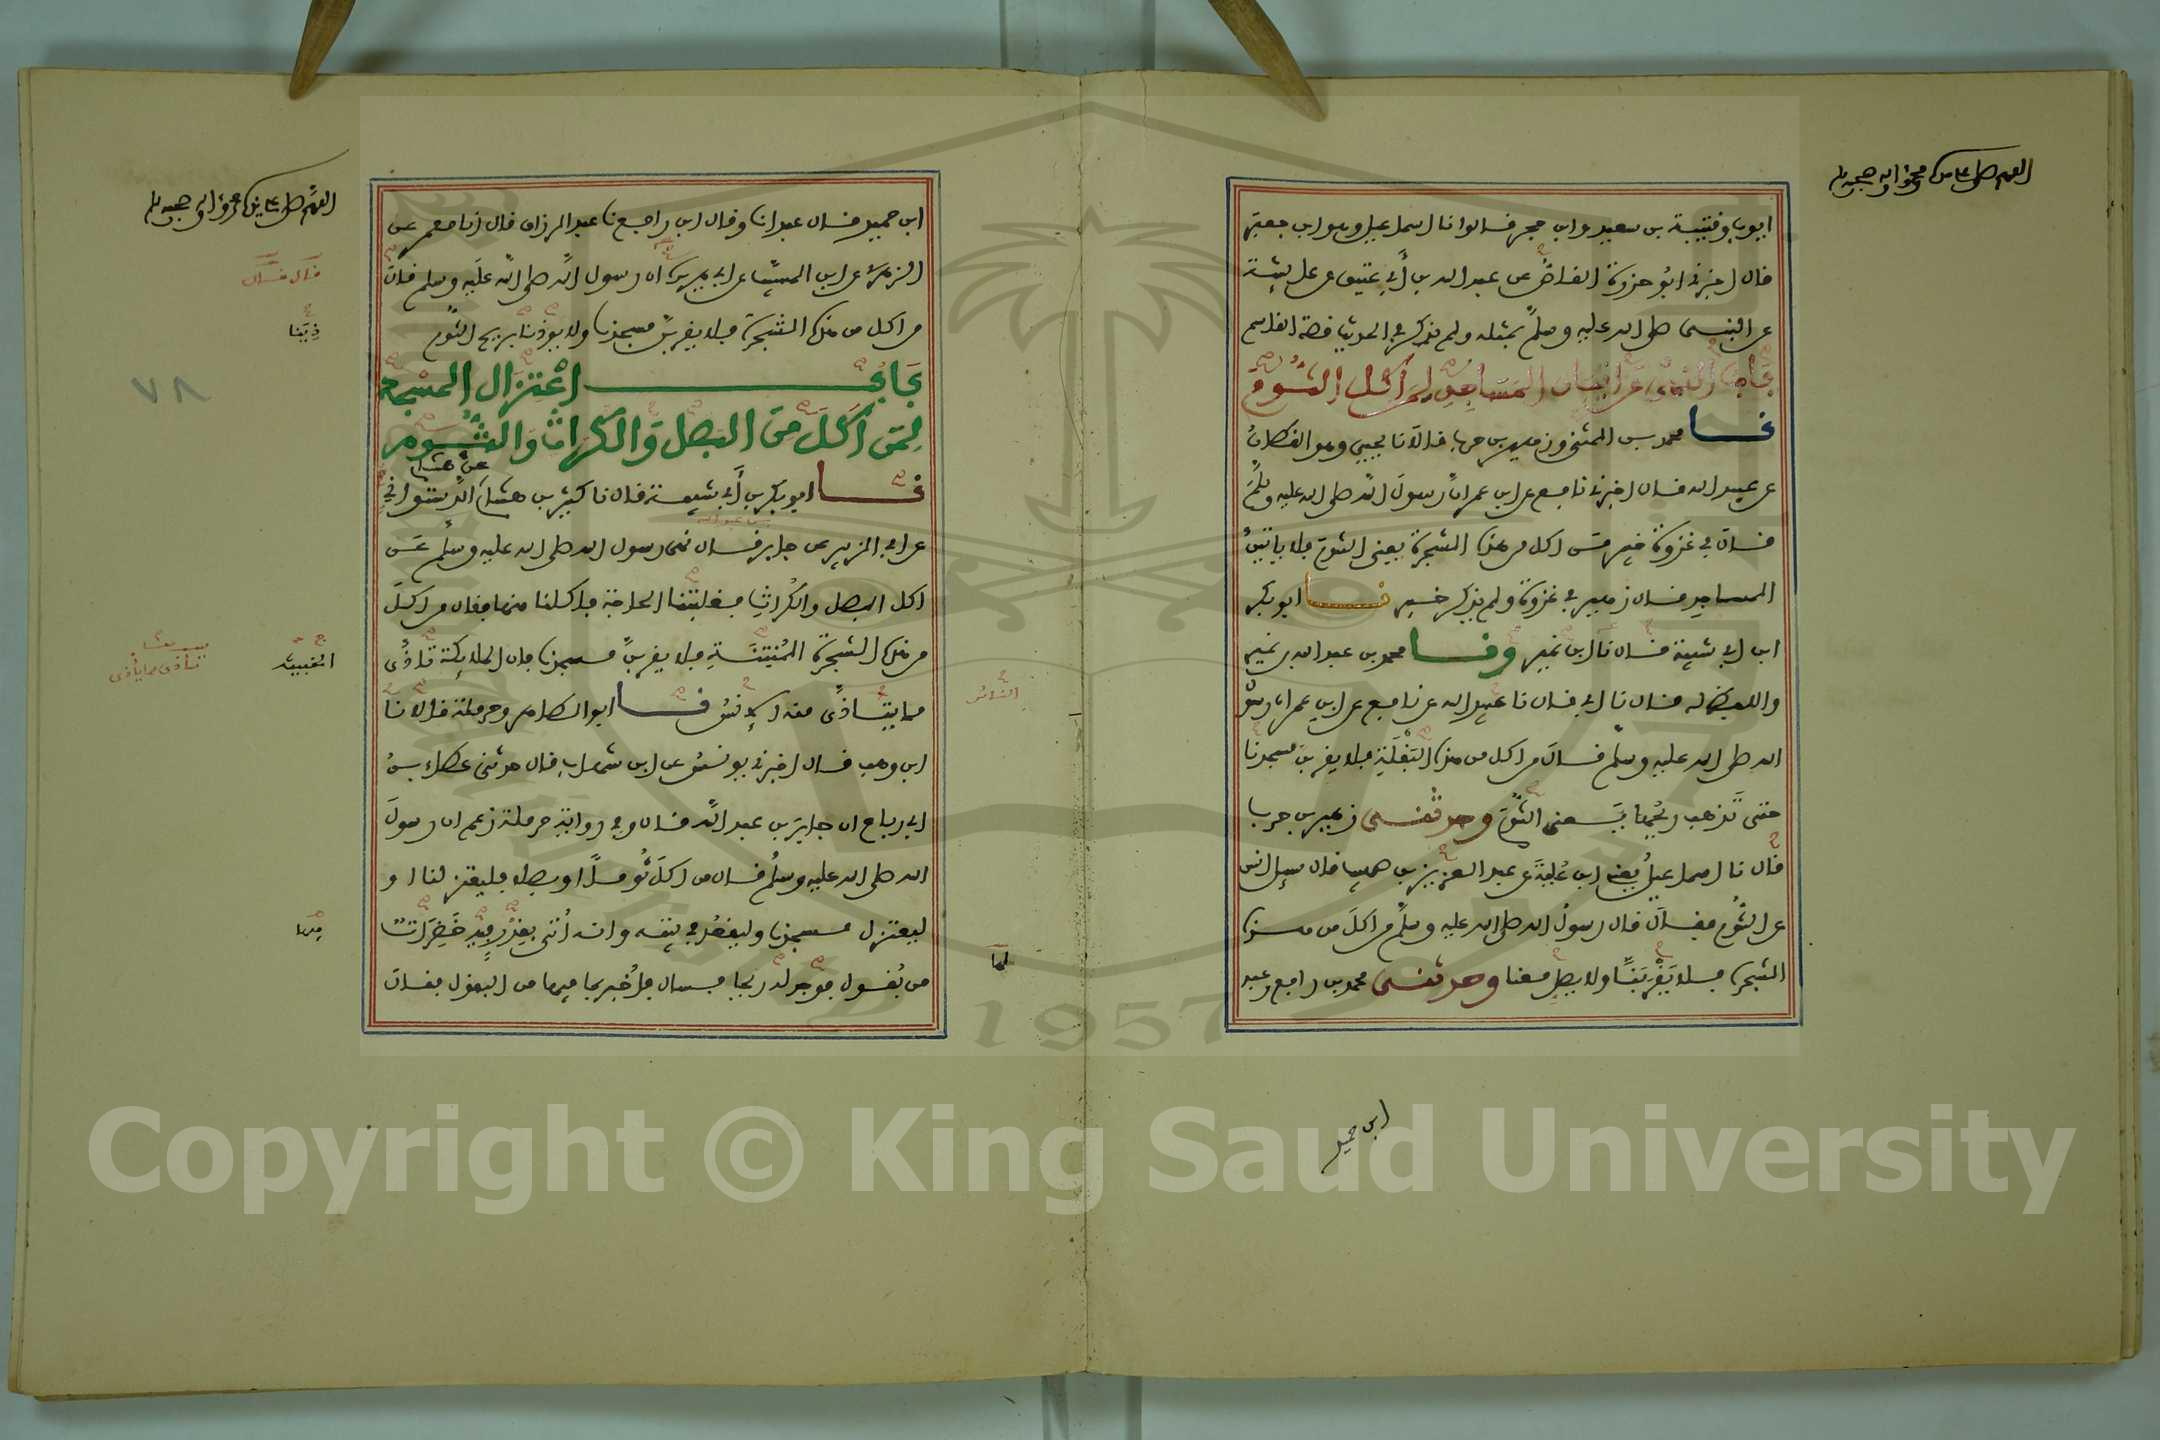 اللهم صل على سيدنا محمد وآله وصحبه وسلم
ايوب وقتيبة بن سعيد وابن حجر قالوا نا اسمعيل وهو ابن جعفر
قال اخبرني ابو حزرة القاص عن عبد الله بن أبي عتيق عن عايشة
عن النبي صلى الله عليه وسلم بمثله ولم يذكر في الحديث قصة القاسم
باب النهي عن اتيان المساجد لمن اكل الثوم
نا محمد بن المثنى وزهير بن حرب قالا نا يحيى وهو القطان
عن عبيد الله قال اخبرني نافع عن ابن عمر ان رسول الله صلى الله عليه وسلم
قال في غزوة خيبر من اكل من هذه الشجرة يعني الثوم فلا ياتين
المساجد قال زهير في غزوة ولم يذكر خيبر نا ابو بكر
ابن ابي شيبة قال نا ابن نمير ونا محمد بن عبد الله بن نمير
واللفظ له قال نا ابي قال نا عبيد الله عن نافع عن ابن عمر ان رسول
الله صلى الله عليه وسلم قال من اكل من هذه البقلة فلا يقربن مسجدنا
حتى تذهب ريحها يعني الثوم وحدثني زهير بن حرب
قال نا اسمعيل يعني ابن علية عن عبد العزيز بن صهيب قال سيل انس
عن الثوم فقال قال رسول الله صلى الله عليه وسلم من اكل من هذه
الشجرة فلا يقربنا ولا يصل معنا وحدثني محمد بن رافع وعبد
ابن حميد
اللهم صل على سيدنا محمد وآله وصحبه وسلم
ابن حميد قال عبد انا وقال ابن رافع نا عبد الرزاق قال انا معمر عن
الزهري عن ابن المسيب عن ابي هريرة ان رسول الله صلى الله عليه وسلم قال
من اكل من هذه الشجرة فلا يقربن مسجدنا ولا يوذنا بريح الثوم
باب اعتزال المسجد
لمن أكل من البصل والكراث والثوم
نا ابو بكر بن أبي شيبة قال نا كثير بن هشام عن هشام الدستواني
عن ابي الزبير عن جابر بن عبد الله قال نهى رسول الله صلى الله عليه وسلم عن
اكل البصل والكراث فغلبتنا الحاجة فاكلنا منها فقال من اكل
من هذه الشجرة المنتنة فلا يقربن مسجدنا فان الملايكة تاذى
مما يتاذى منه الانس نا ابو الطاهر وحرملة قالا نا
ابن وهب قال اخبرني يونس عن ابن شهاب قال حدثني عطاء بن
ابي رباح ان جابر بن عبد الله قال وفي رواية حرملة زعم ان رسول
الله صلى الله عليه وسلم قال من اكل ثوما او بصلا فليعتزلنا او
ليعتزل مسجدنا وليقعد في بيته وانه أتي بقدر فيه خضرات
من بقول فوجد لها ريحا فسال فأخبر بما فيها من البقول فقال
قال قال
ذينا
الخبيثة
تاذى مما ياذى
فيها
لها
٧٨
Copyright © King Saud University
1957